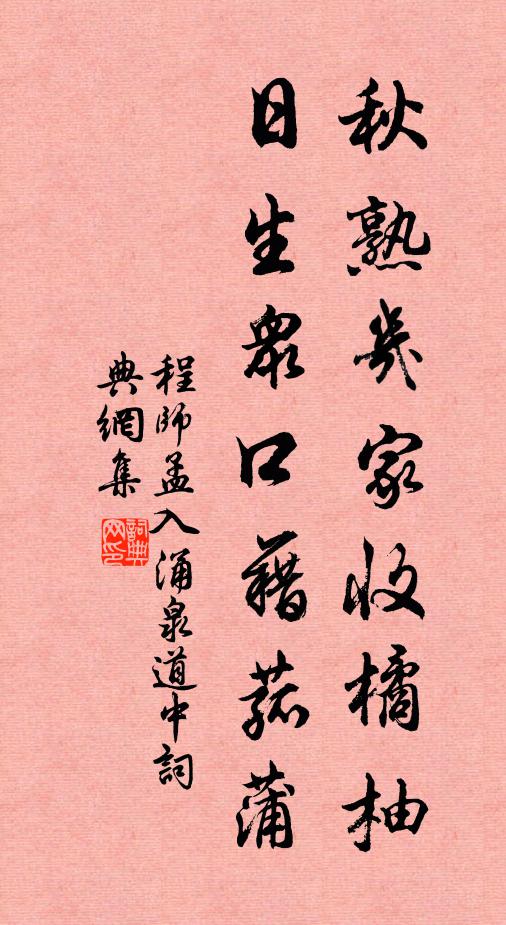 秋熟幾家收橘柚
日生衆口藉菰蒲
程師孟入涌泉道中詞
典網集
詞典
网印